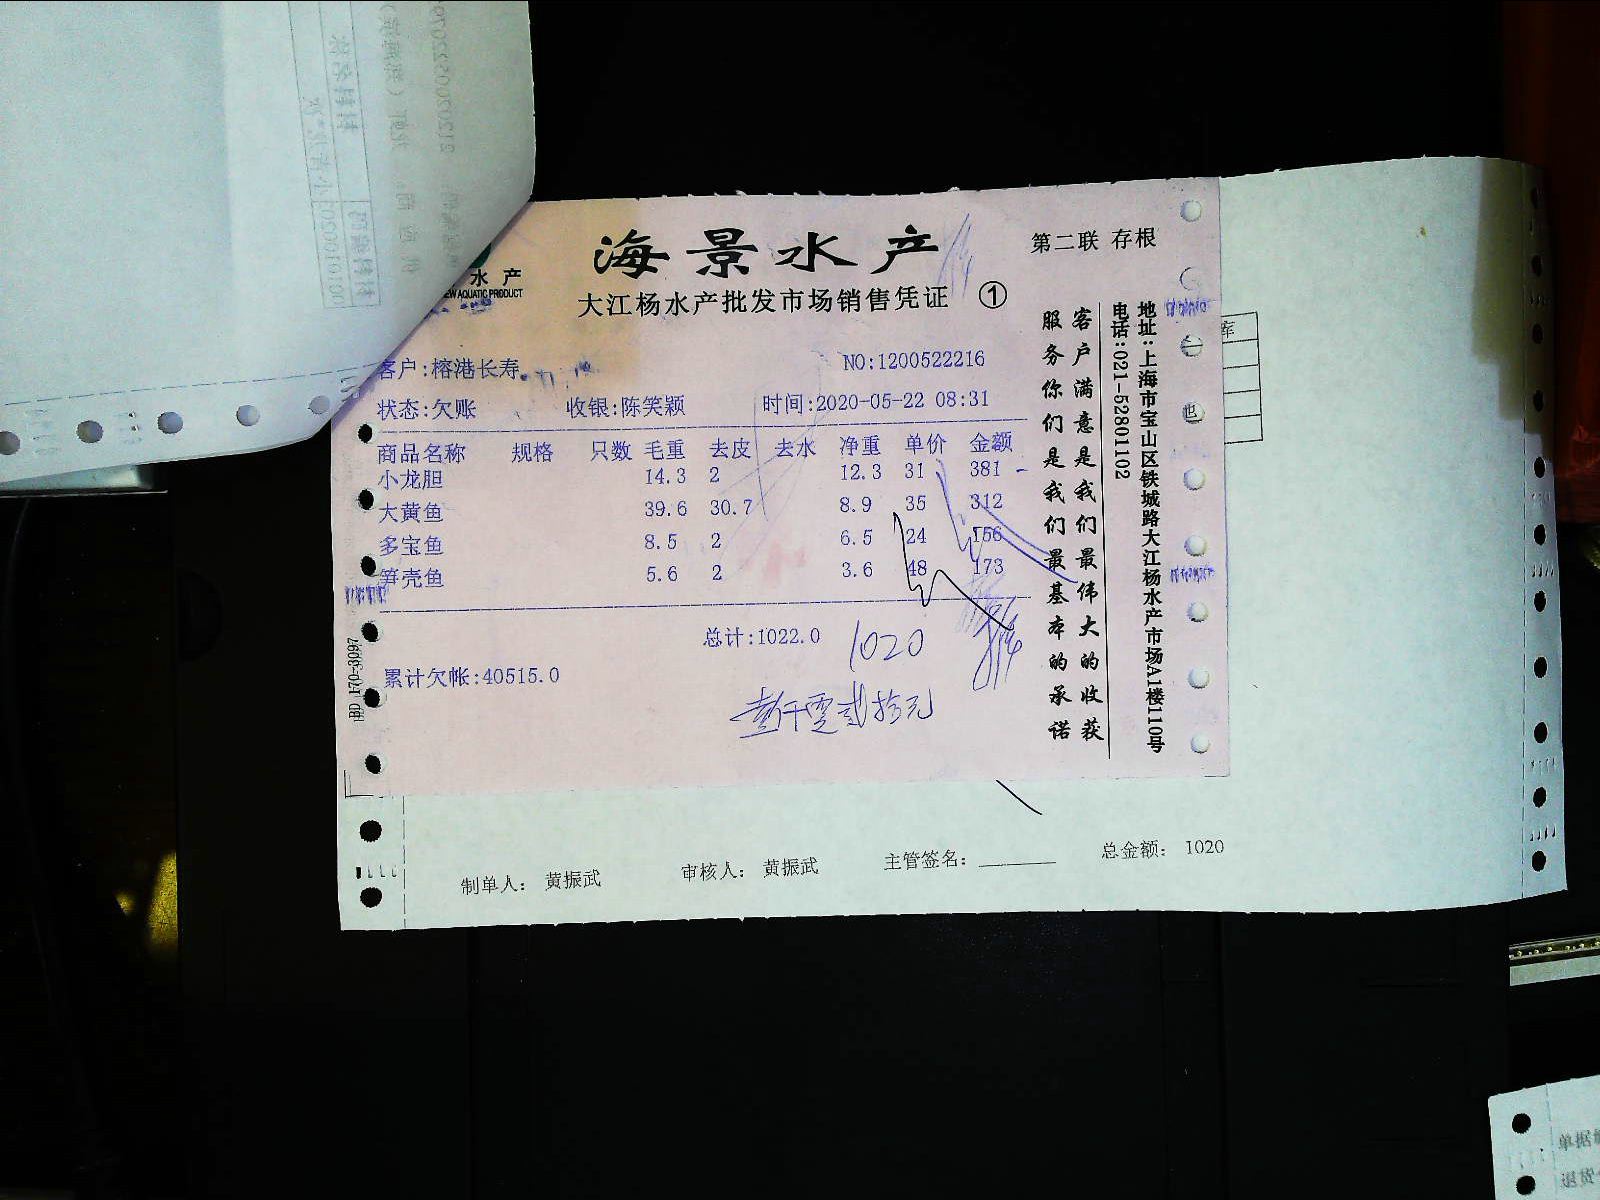 海景水产
第二联 存根
水产
EW AQUATIC PRODUCT
大江杨水产批发市场销售凭证 ①
客户:榕港长寿
NO:1200522216
状态:欠账 收银:陈笑颖 时间:2020-05-22 08:31
商品名称 规格 只数 毛重 去皮 去水 净重 单价 金额
小龙胆 14.3 2 12.3 31 381
大黄鱼 39.6 30.7 8.9 35 312
多宝鱼 8.5 2 6.5 24 156
笋壳鱼 5.6 2 3.6 48 173
总计:1022.0 1020
累计欠帐:40515.0
壹仟零贰拾元
客户满意是我们最伟大的收获
服务你们是我们最基本的承诺
地址:上海市宝山区铁城路大江杨水产市场A1楼110号
电话:021-52801102
库
制单人: 黄振武 审核人: 黄振武 主管签名: 总金额: 1020
单据
退货